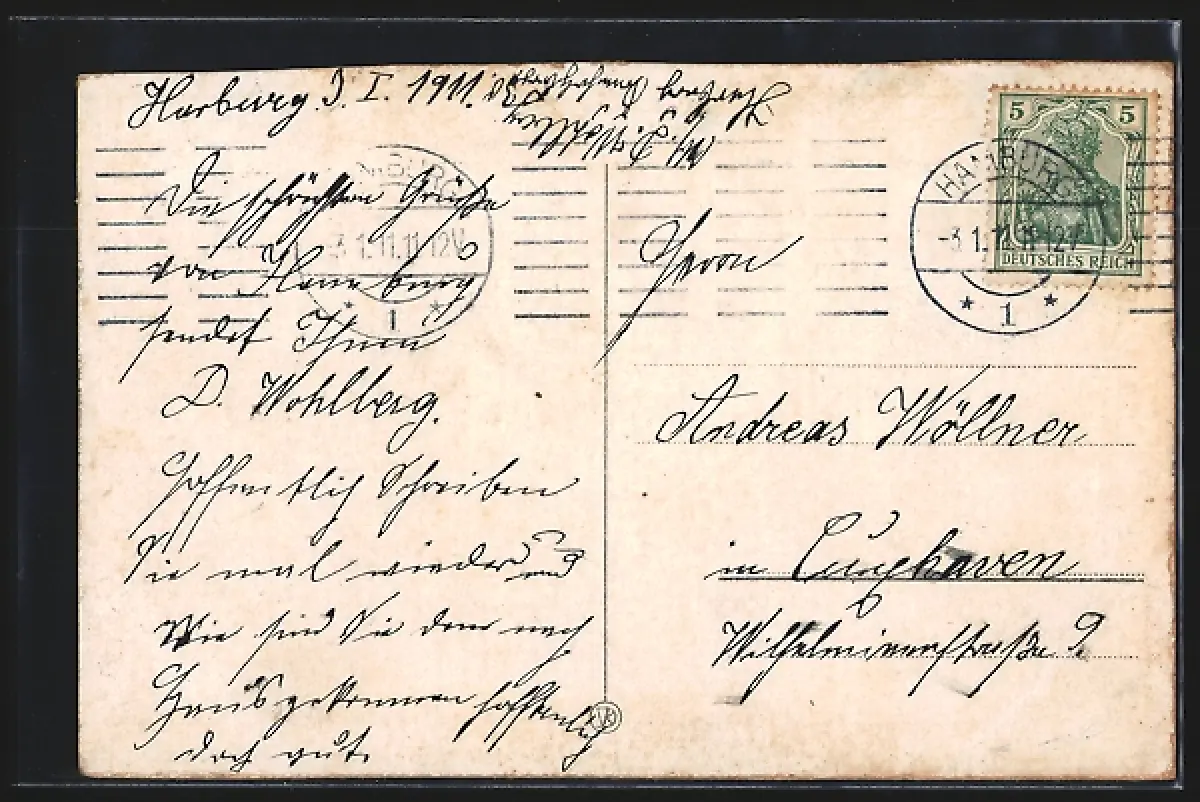 Harburg. 3. I. 1911.
Die schönsten Grüße
von Hamburg
sendet Ihnen
D. Wohlberg.
Hoffentlich Schreiben
Sie mal wieder und
Wie sind Sie denn nach
Haus gekommen hoffentlich
doch gut.
HAMBURG
-3.1.11.11-12V
* 1 *
5 5
DEUTSCHES REICH
HAMBURG
-3.1.11.11-12V
* 1 *
Herrn
Andreas Wöllner
in Cuxhaven
Wilhelminenstraße 2